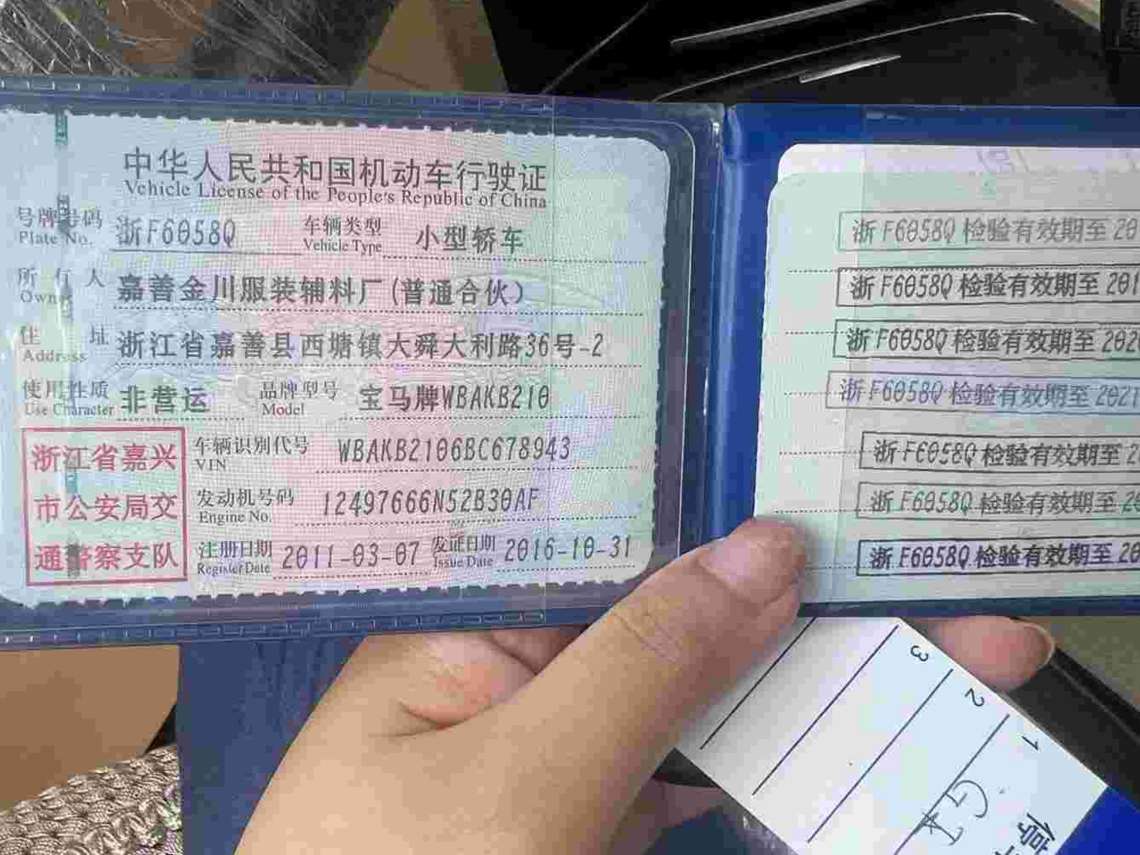 中华人民共和国机动车行驶证
Vehicle License of the People's Republic of China
号牌号码 浙F6058Q 车辆类型 小型轿车
Plate No. Vehicle Type
所有人 嘉善金川服装辅料厂(普通合伙)
Owner
住址 浙江省嘉善县西塘镇大舜大利路36号-2
Address
使用性质 非营运 品牌型号 宝马牌WBAKB210
Use Character Model
浙江省嘉兴
市公安局交
通警察支队
车辆识别代号 WBAKB2106BC678943
VIN
发动机号码 12497666N52B30AF
Engine No.
注册日期 2011-03-07 发证日期 2016-10-31
Register Date Issue Date
浙F6058Q检验有效期至20
浙F6058Q检验有效期至201
浙F6058Q检验有效期至202
浙F6058Q检验有效期至2021
浙F6058Q检验有效期至20
浙F6058Q检验有效期至2
浙F6058Q检验有效期至20
3
2
1